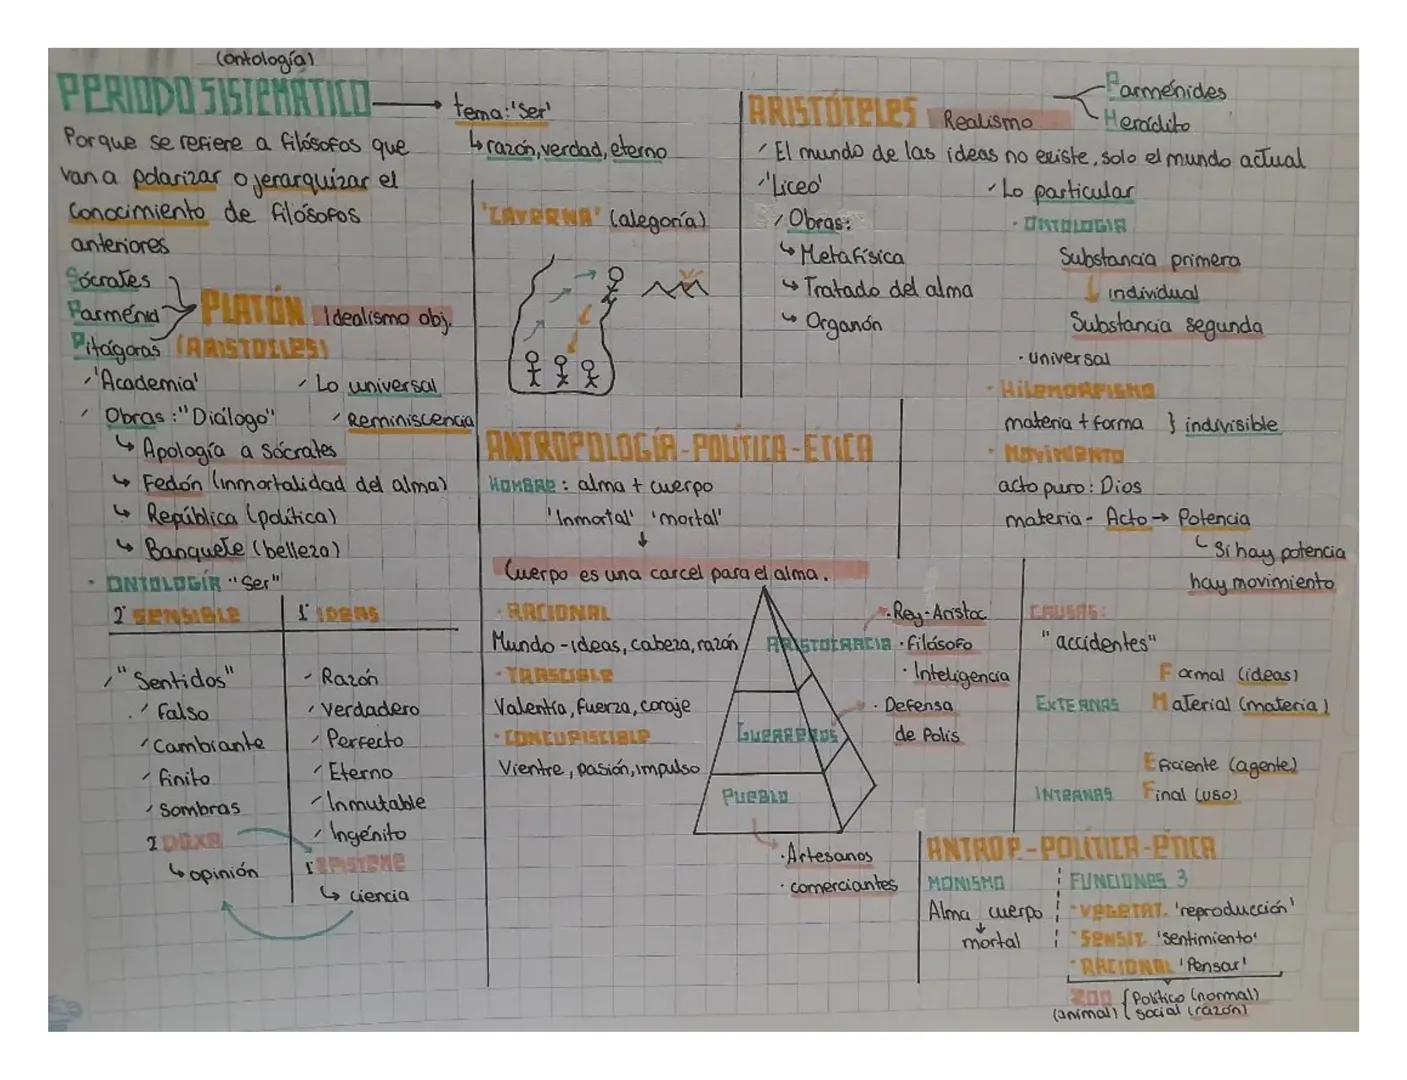 (ontología)
PERIODO SISTEMÁTICO → tema: 'Ser'
↳ razón, verdad, eterno
Porque se refiere a filósofos que
van a polarizar o jerarquizar el
conocimiento de filósofos
anteriores
Sócrates
Parménid
Pitágoras
PLATÓN Idealismo obj.
(ARISTOCLES)
'Academia'
Lo universal
Obras: "Diálogo"
Reminiscencia
↳ Apología a Sócrates
↳ Fedón (inmortalidad del alma)
↳ República (política)
↳ Banquete (belleza)
· ONTOLOGÍA "Ser"
2° SENSIBLE
1° IDEAS
"Sentidos"
Falso
Cambiante
finito
Sombras
2 DOXA
↳ opinión
Razón
Verdadero
Perfecto
Eterno
Inmutable
Ingénito
1° EPISTEME
↳ ciencia
'CAVERNA' (alegoría)
ANTROPOLOGÍA-POLÍTICA-ÉTICA
HOMBRE: alma + cuerpo
'Inmortal' 'mortal'
↓
Cuerpo es una carcel para el alma.
· RACIONAL
Mundo-ideas, cabeza, razón
· IRASCIBLE
Valentía, fuerza, coraje
· CONCUPISCIBLE
Vientre, pasión, impulso
ARISTOCRACIA
· Rey-Aristoc
· filósofo
· Inteligencia
GUERREROS
· Defensa
de Polis
PUEBLO
· Artesanos
· comerciantes
ARISTÓTELES Realismo
Parménides
Heráclito
El mundo de las ideas no existe, solo el mundo actual
'Liceo'
Lo particular
Obras:
↳ Metafísica
↳ Tratado del alma
↳ Organón
· ONTOLOGIA
Substancia primera
↓ individual
Substancia segunda
· universal
· HILEMORFISMO
materia + forma } indivisible
· MOVIMIENTO
acto puro: Dios
materia - Acto → Potencia
Si hay potencia
hay movimiento
CAUSAS:
"accidentes"
EXTERNAS
Formal (ideas)
Material (materia)
INTERNAS
Eficiente (agente)
Final (uso)
ANTROP.-POLÍTICA-ÉTICA
MONISMO
Alma cuerpo
↓
mortal
FUNCIONES 3
· VEGETAT. 'reproducción'
· SENSIT. 'sentimiento'
· RACIONAL 'Pensar'
ZOO { Político (normal)
(animal) { social (razón)